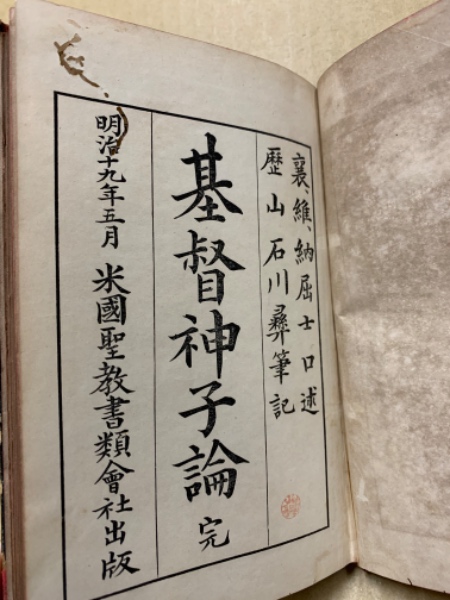 襄、維、納屈士口述
歴山石川彝筆記
基督神子論 完
明治十九年五月 米國聖教書類會社出版